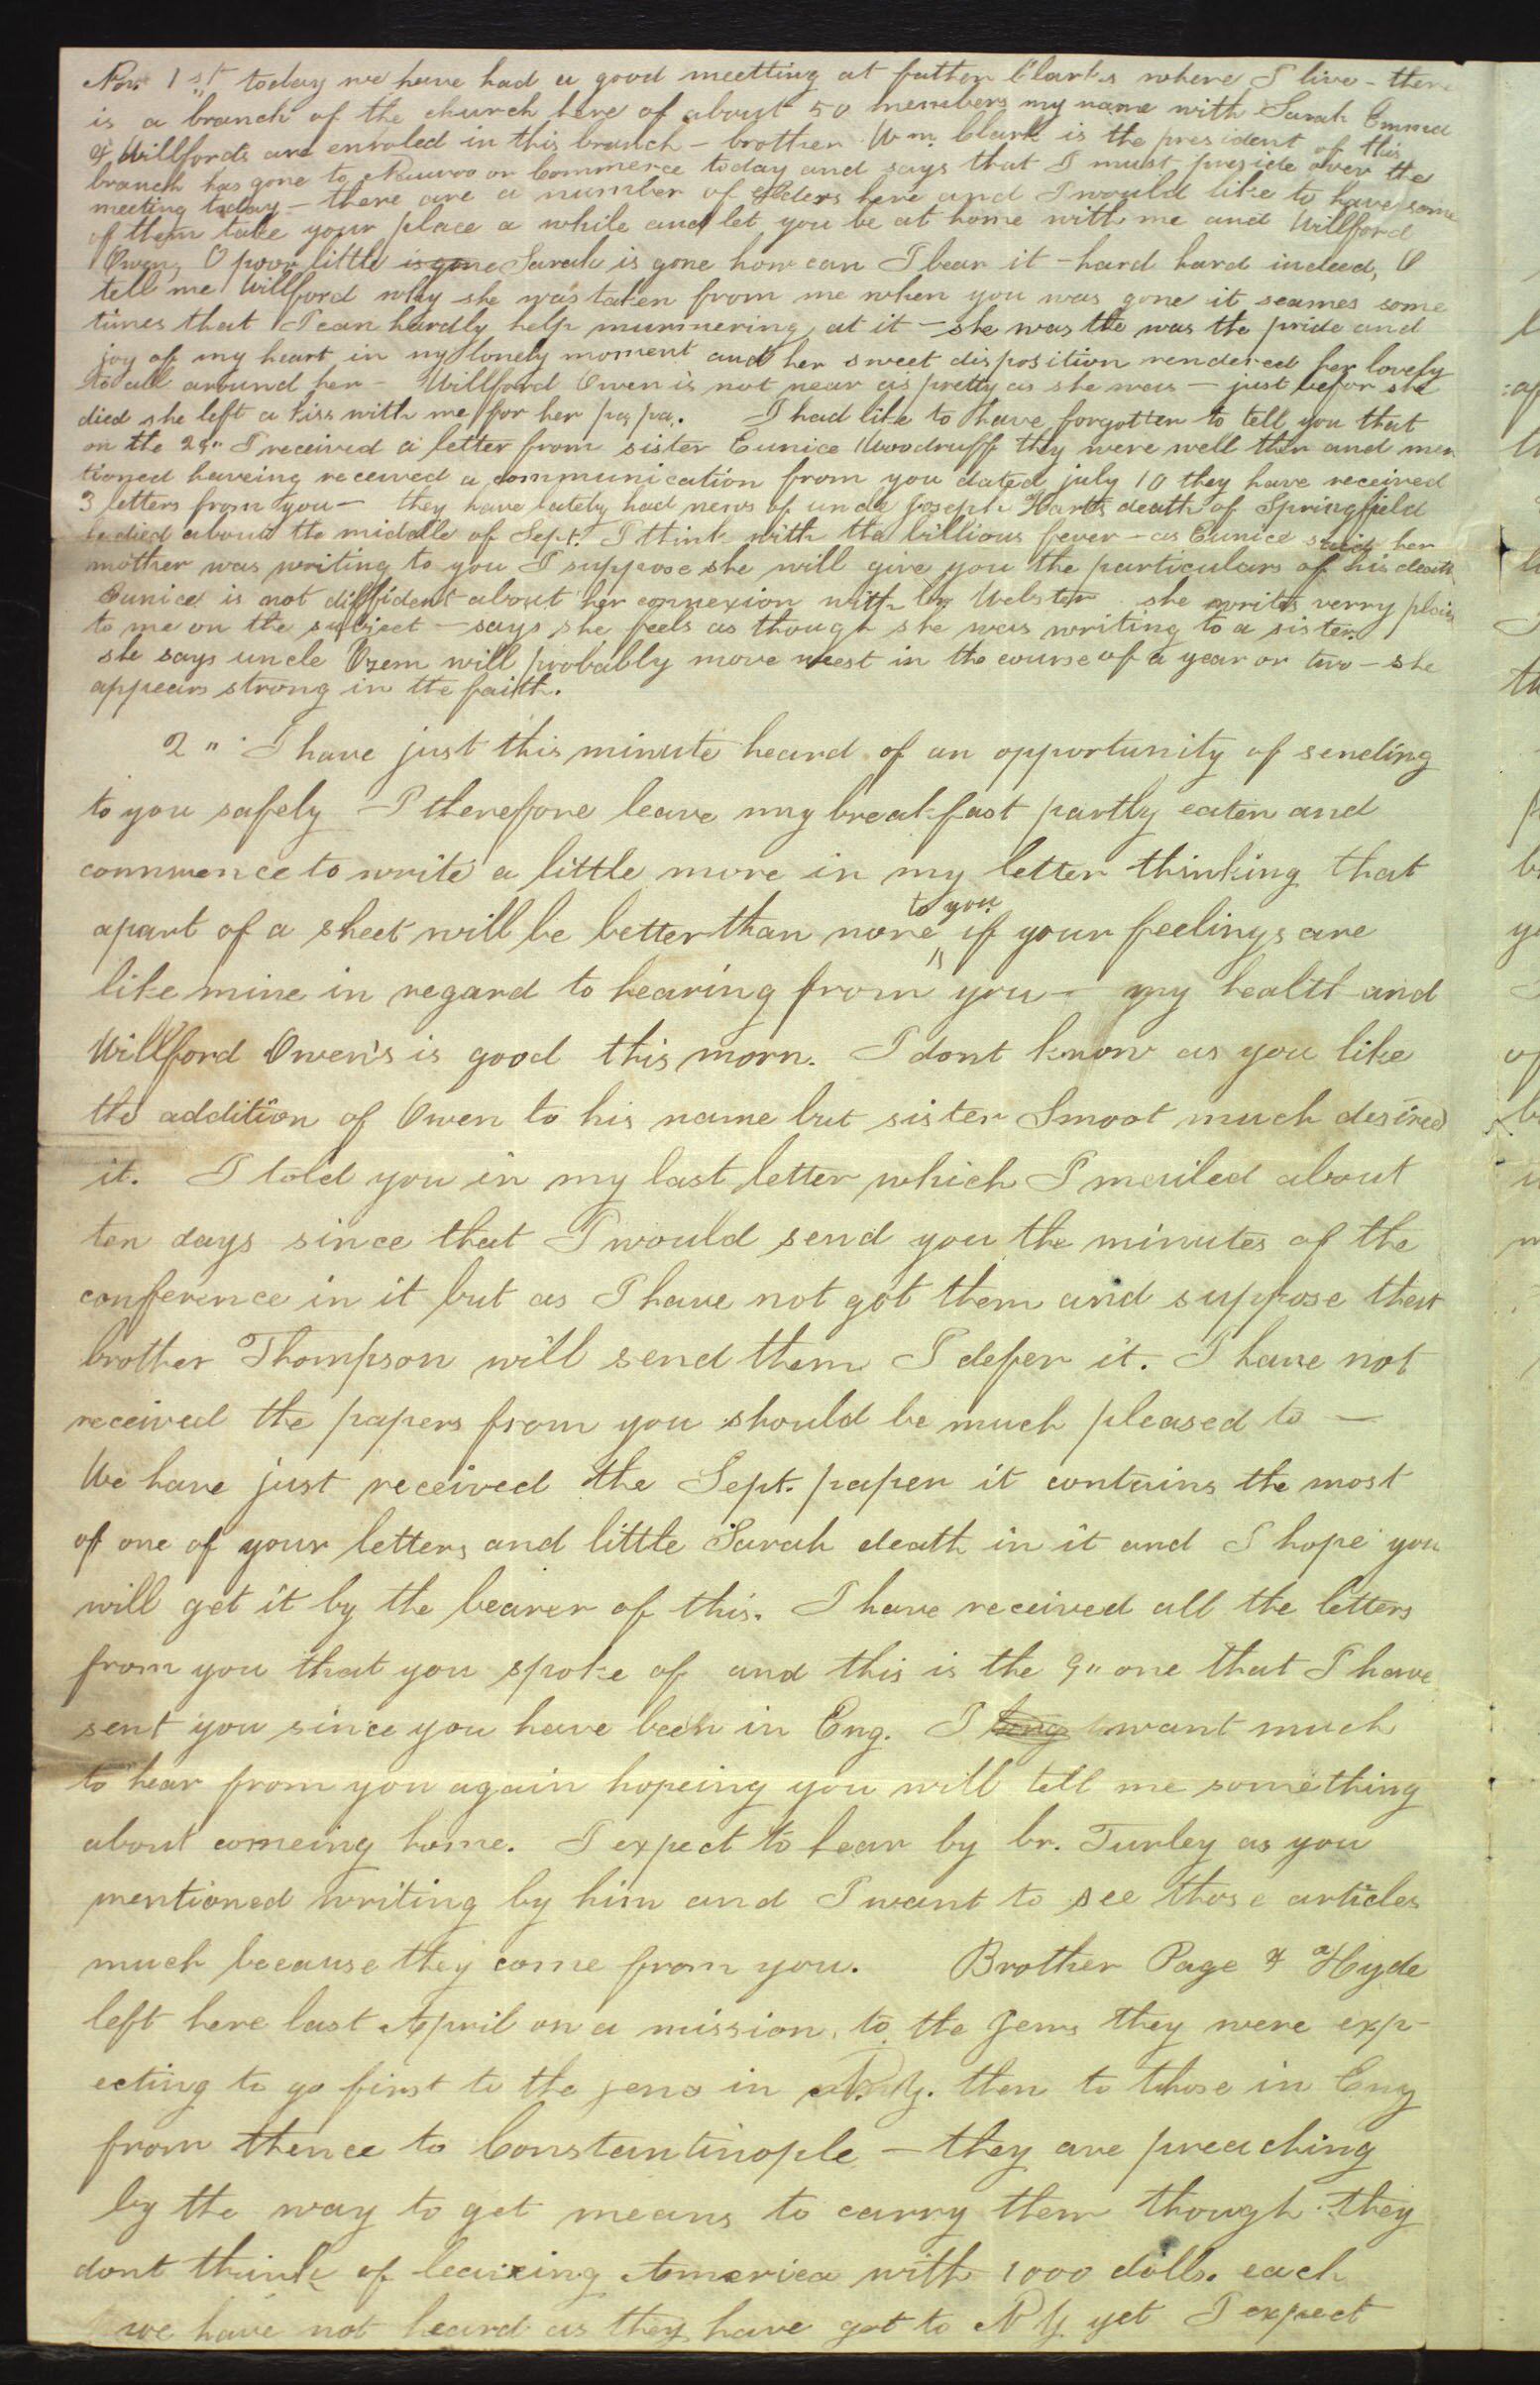 Nov. 1st today we have had a good meetting at father Clarks where I live - there
is a branch of the church here of about 50 members my name with Sarah Emmas
& Willfords are enroled in this branch - brother Wm. Clark is the president of this
branch has gone to Nauvoo or Commerce today and says that I must preside over the
meeting today - there are a number of Elders here and I would like to have some
of them take your place a while and let you be at home with me and Willford
Owen, O poor little is gone Sarah is gone how can I bear it - hard hard indeed, O
tell me Willford why she was taken from me when you was gone it seames some
times that I can hardly help murmering at it - she was the was the pride and
joy of my heart in my lonely moment and her sweet disposition rendered her lovely
to all around her - Willford Owen is not near as pretty as she was - just befor she
died she left a kiss with me for her pa, pa. I had like to have forgotten to tell you that
on the 29" I received a letter from sister Eunice Woodruff they were well then and men
tioned haveing received a communication from you dated july 10 they have received
3 letters from you - they have lately had news of uncle Joseph Harts death of Springfield
he died about the middle of Sept. I think with the billious fever - as Eunice said her
mother was writing to you I suppose she will give you the particulars of his death
Eunice is not diffident about her connexion with br Webster she writes verry plain
to me on the subject - says she feels as though she was writing to a sister.
she says uncle Ozem will probably move west in the course of a year or two - she
appears strong in the faith.
2" I have just this minute heard of an opportunity of sending
to you safely I therefore leave my breakfast partly eaten and
commence to write a little more in my letter thinking that
apart of a sheet will be better than none to you if your feelings are
like mine in regard to hearing from you - my health and
Willford Owen's is good this morn. I dont know as you like
the addition of Owen to his name but sister Smoot much desired
it. I told you in my last letter which I mailed about
ten days since that I would send you the minutes of the
conference in it but as I have not got them and suppose that
brother Thompson will send them I defer it. I have not
received the papers from you should be much pleased to -
We have just received the Sept. paper it contains the most
of one of your letters and little Sarah death in it and I hope you
will get it by the bearer of this. I have received all the letters
from you that you spoke of and this is the 9" one that I have
sent you since you have been in Eng. I long want much
to hear from you again hopeing you will tell me something
about comeing home. I expect to hear by br. Turley as you
mentioned writing by him and I want to see those articles
much because they come from you. Brother Page & Hyde
left here last April on a mission, to the Jews they were exp-
ecting to go first to the jews in N.Y. then to those in Eng
from thence to Constantinople - they are preaching
by the way to get means to carry them though they
dont think of leaveing America with 1000 dolls. each
we have not heard as they have got to N Y yet I expect